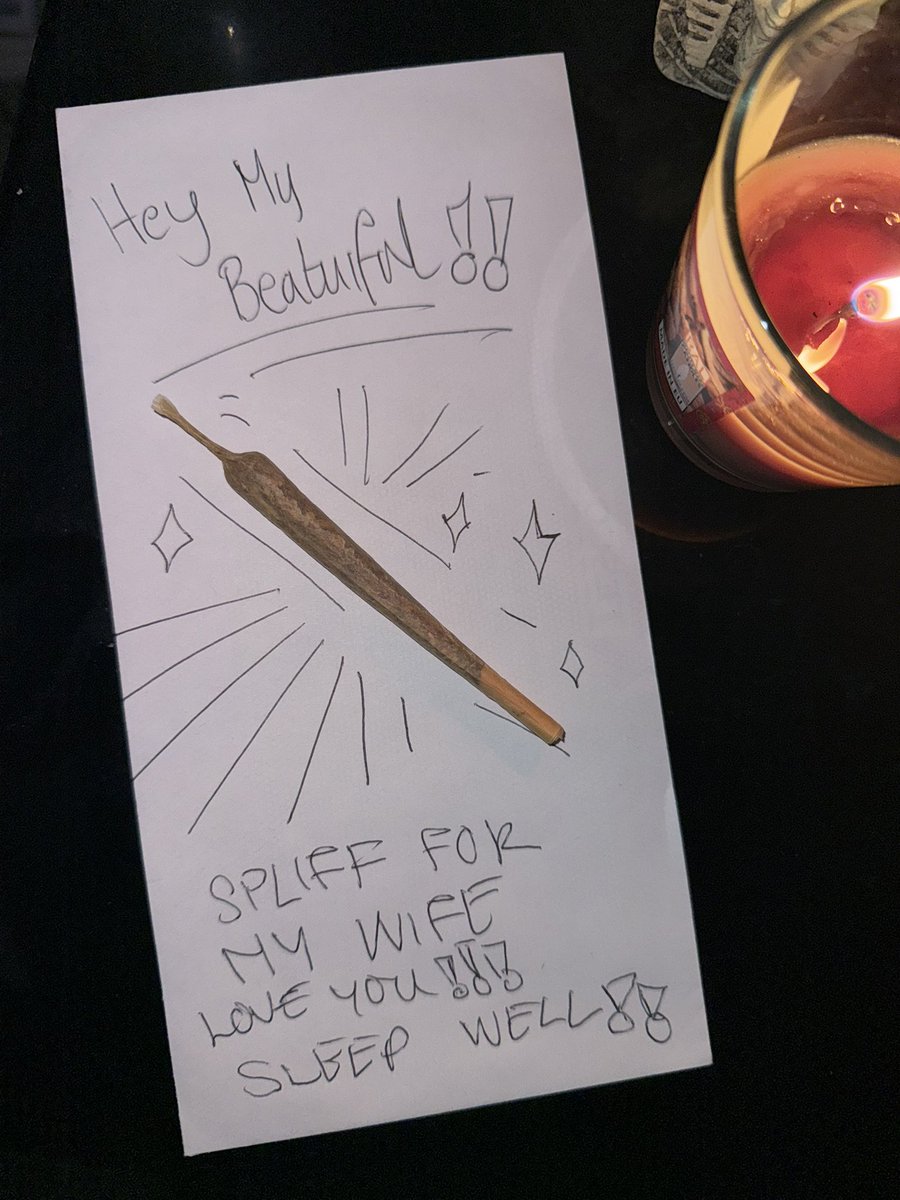 Hey My
Beatuiful!!
SPLIFF FOR
MY WIFE
LOVE YOU!!!
SLEEP WELL!!